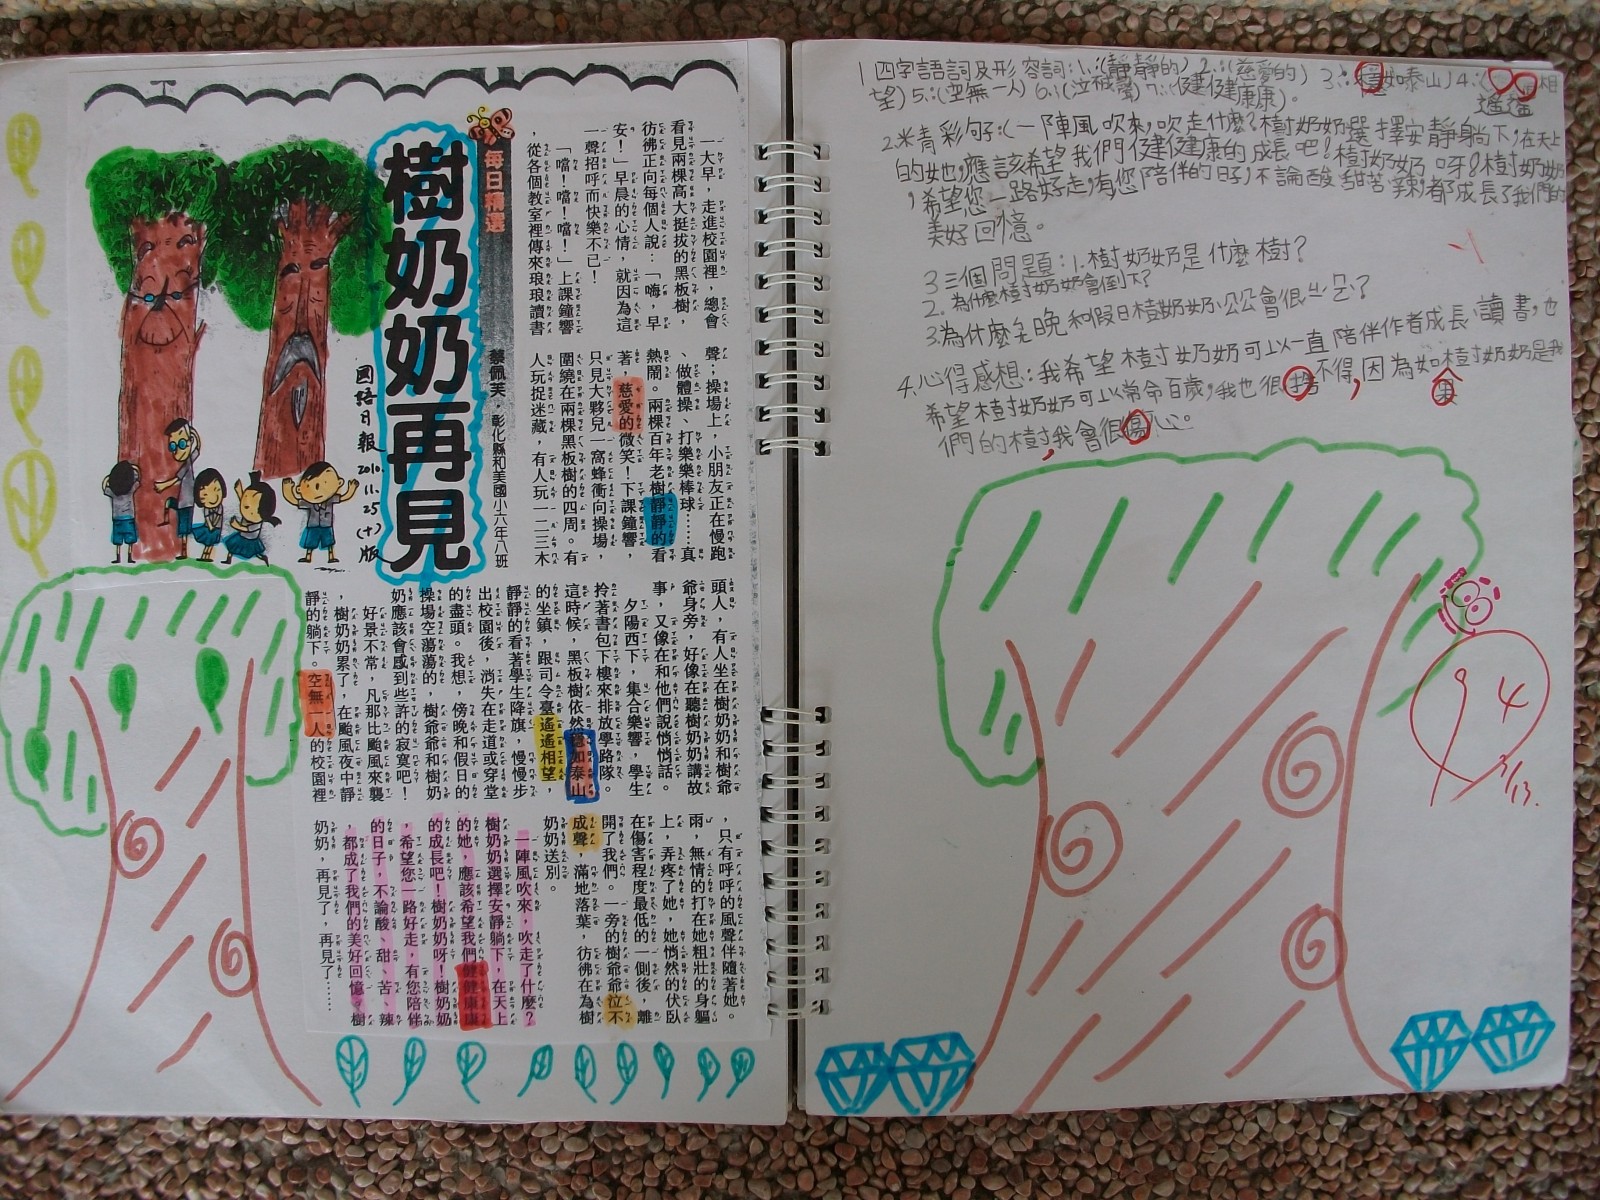 每日精選
樹奶奶再見
蔡佩芙．彰化縣和美國小六年八班
國語日報
2010.
11.
25
(十)版
一大早，走進校園裡，總會
看見兩棵高大挺拔的黑板樹，
彷彿正向每個人說：「嗨，早
安！」早晨的心情，就因為這
一聲招呼而快樂不已！
「噹！噹！噹！」上課鐘響
，從各個教室裡傳來琅琅讀書
聲；操場上，小朋友正在慢跑
、做體操、打樂樂棒球……真
熱鬧。兩棵百年老樹靜靜的看
著，慈愛的微笑！下課鐘響，
只見大夥兒一窩蜂衝向操場，
圍繞在兩棵黑板樹的四周。有
人玩捉迷藏，有人玩一二三木
頭人，有人坐在樹奶奶和樹爺
爺身旁，好像在聽樹奶奶講故
事，又像在和他們說悄悄話。
夕陽西下，集合樂響，學生
拎著書包下樓來排放學路隊。
這時候，黑板樹依然穩如泰山
的坐鎮，跟司令臺遙遙相望，
靜靜的看著學生降旗，慢慢步
出校園後，消失在走道或穿堂
的盡頭。我想，傍晚和假日的
操場空蕩蕩的，樹爺爺和樹奶
奶應該會感到些許的寂寞吧！
好景不常，凡那比颱風來襲
，樹奶奶累了，在颱風夜中靜
靜的躺下。空無一人的校園裡
，只有呼呼的風聲伴隨著她。
雨，無情的打在她粗壯的身軀
上，弄疼了她，她悄然的伏臥
在傷害程度最低的一側後，離
開了我們。一旁的樹爺爺泣不
成聲，滿地落葉，彷彿在為樹
奶奶送別。
一陣風吹來，吹走了什麼？
樹奶奶選擇安靜躺下，在天上
的她，應該希望我們健健康康
的成長吧！樹奶奶呀！樹奶奶
，希望您一路好走，有您陪伴
的日子，不論酸、甜、苦、辣
，都成了我們的美好回憶。樹
奶奶，再見了，再見了……
1 四字語詞及形容詞：1.:(靜靜的) 2.:(慈愛的) 3.:(穩如泰山) 4.:(遙遙相
望) 5.:(空無一人) 6.:(泣不成聲) 7.:(健健康康)。
2.米青彩句子:(一陣風吹來,吹走什麼?樹奶奶選擇安靜身尚下,在天上
的她,應該希望我們健健康的成長吧!樹奶奶呀!樹奶奶
,希望您一路好走,有您陪伴的日子,不論酸甜苦辣,都成長了我們的
美好回憶。
3 三個問題:1.樹奶奶是什麼樹?
2. 為什麼樹奶奶會倒下?
3.為什麼 晚和假日樹奶奶 公公會很 ?
4.心得感想:我希望樹奶奶可以一直陪伴作者成長、讀書,也
希望樹奶奶可以常命百歲,我也很捨不得,因為如果樹奶奶是我
們的樹,我會很傷心。
94
3/13.